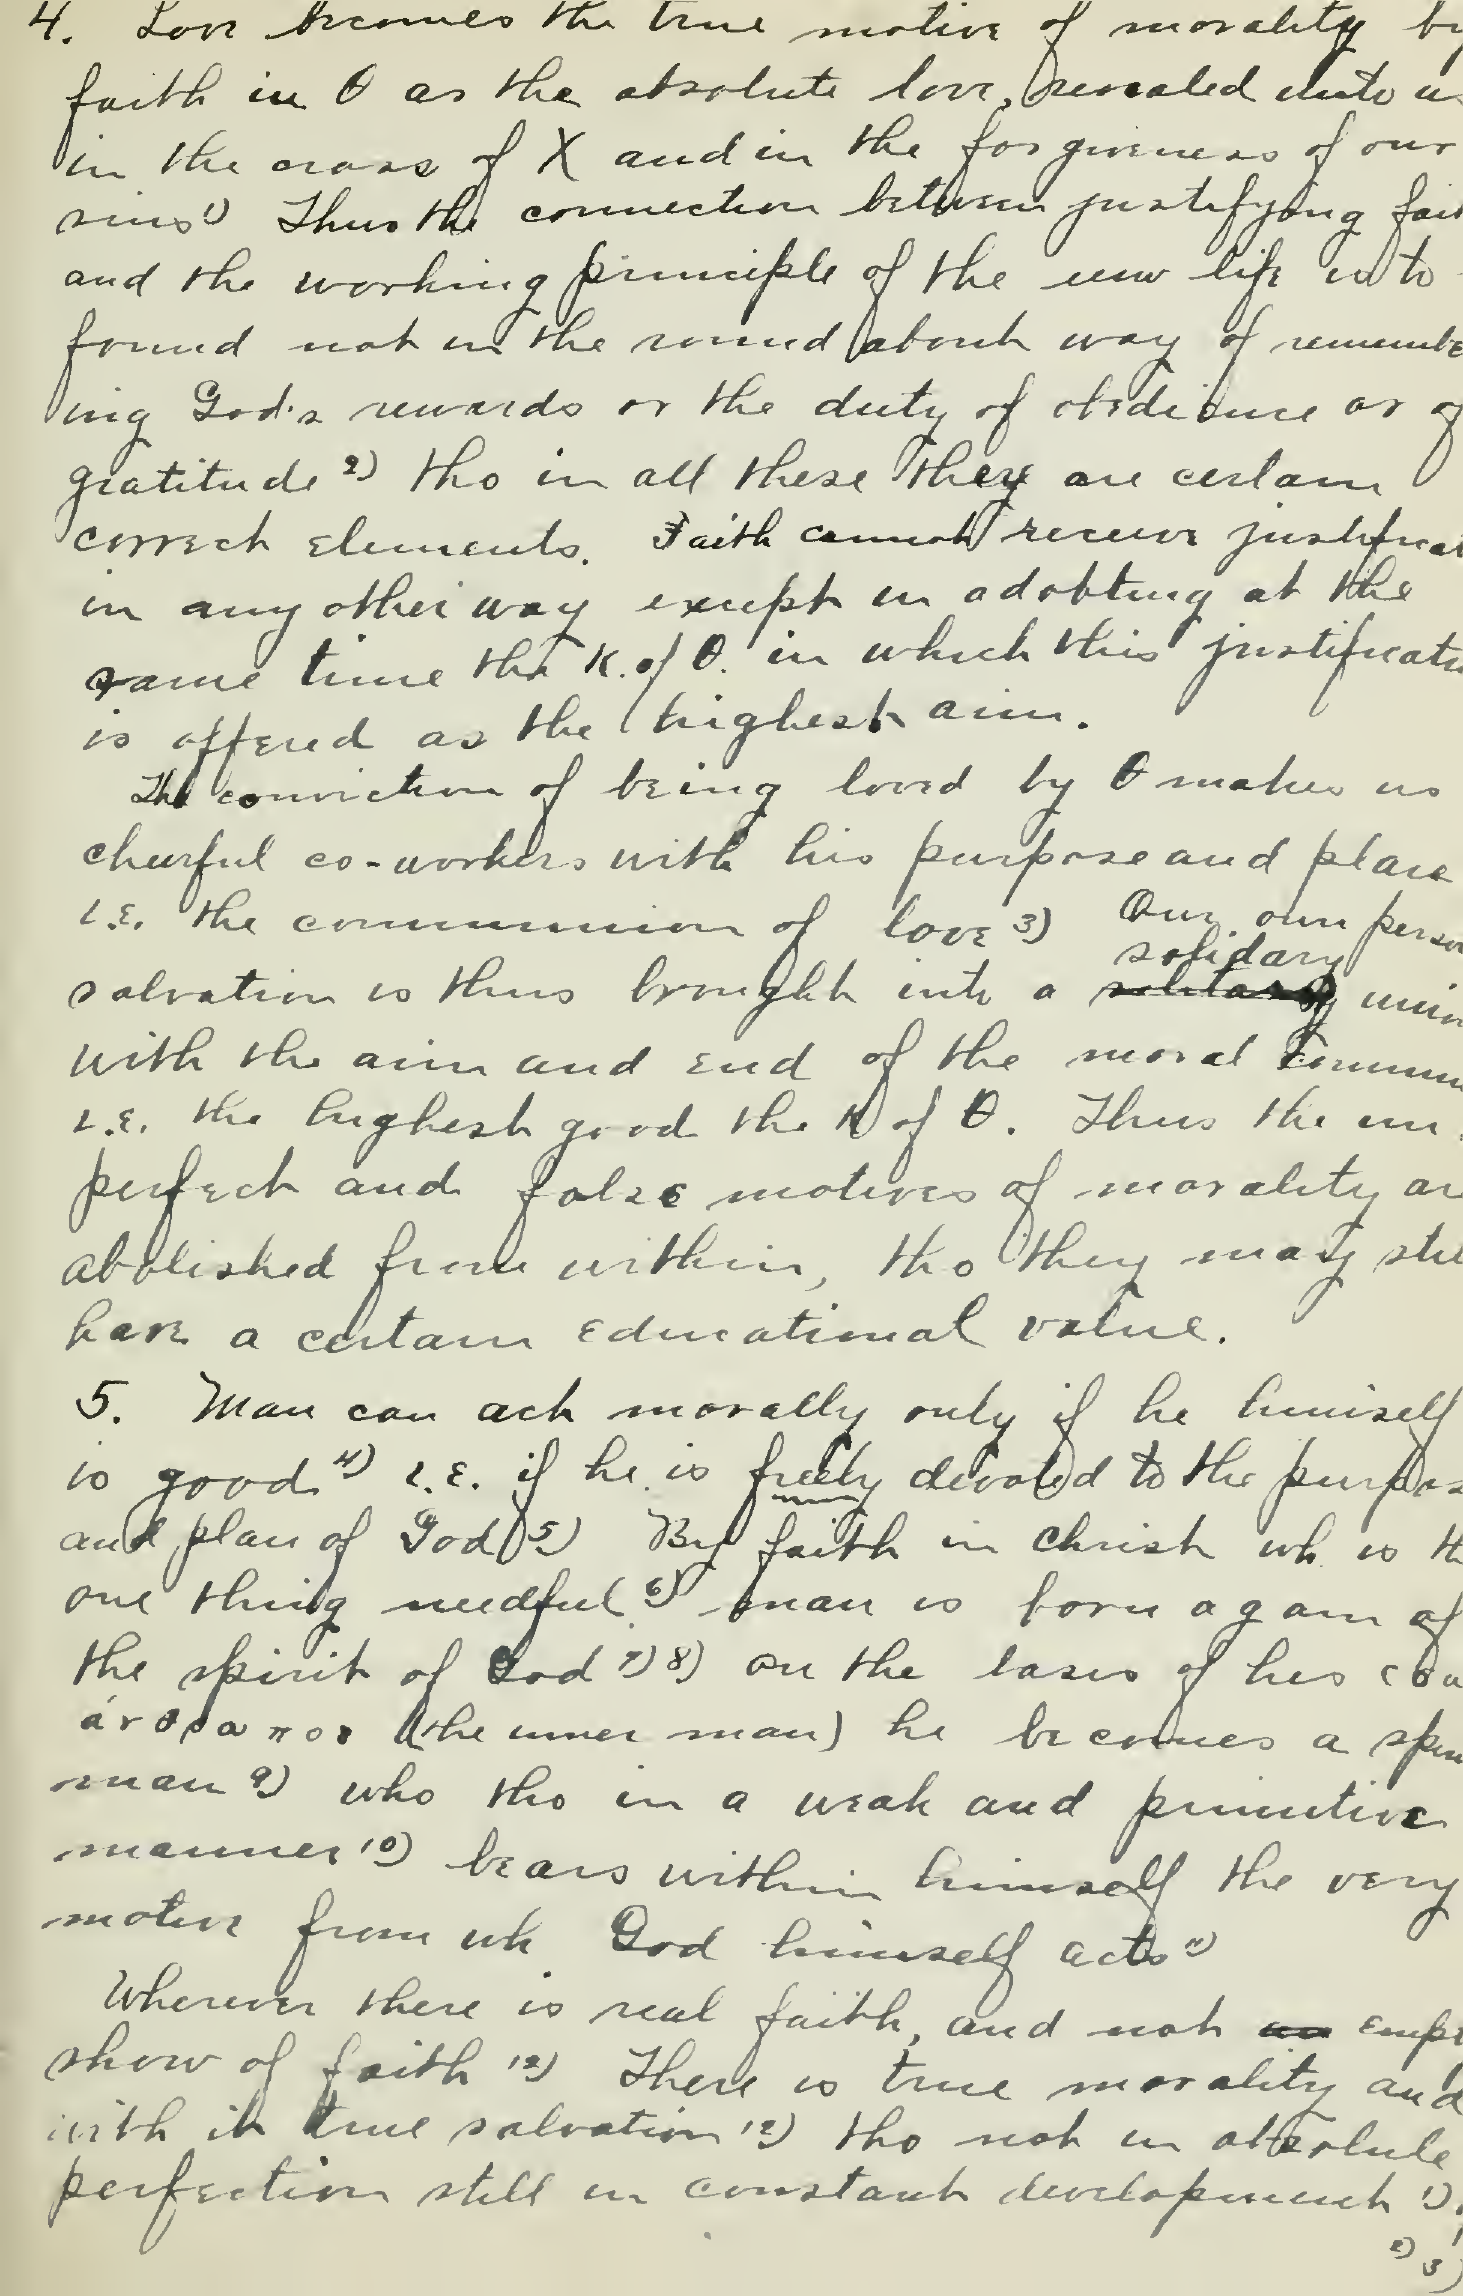 4. Love becomes the true motive of morality by
faith in θ as the absolute love, revealed unto us
in the cross of X and in the forgiveness of our
sins 1) Thus the connection between justifying fait
and the working principle of the new life is to
found not in the round about way of remembe
ing God's rewards or the duty of obedience or of
gratitude 2) tho in all these they are certain
correct elements. Faith cannot receive justificat
in any other way except in adobting at the
same time the K. of θ. in which this justificatio
is offered as the highest aim.
The conviction of being loved by θ makes us
cheerful co-workers with his purpose and plans
i.e. the communion of love 3) Our own person
solidary
salvation is thus brought into a solitary union
with the aim and end of the moral commun
i.e. the highest good the K of θ. Thus the im
perfect and false motives of morality are
abolished from within, tho they may stil
have a certain educational value.
5. Man can act morally only if he himself
is good 4) i.e. if he is freely devoted to the purpos
and plan of God 5) By faith in Christ wh. is th
one thing needful 6) man is born again of
the spirit of God 7) 8) on the basis of his
(the inner man) he becomes a spiri
man 9) who tho in a weak and primitive
manner 10) bears within himself the very
motive from wh God himself acts 11)
Wherever there is real faith, and not an empt
show of faith 12) There is true morality and
with it true salvation 12) tho not in absolute
perfection still in constant development 1)
2) 3)